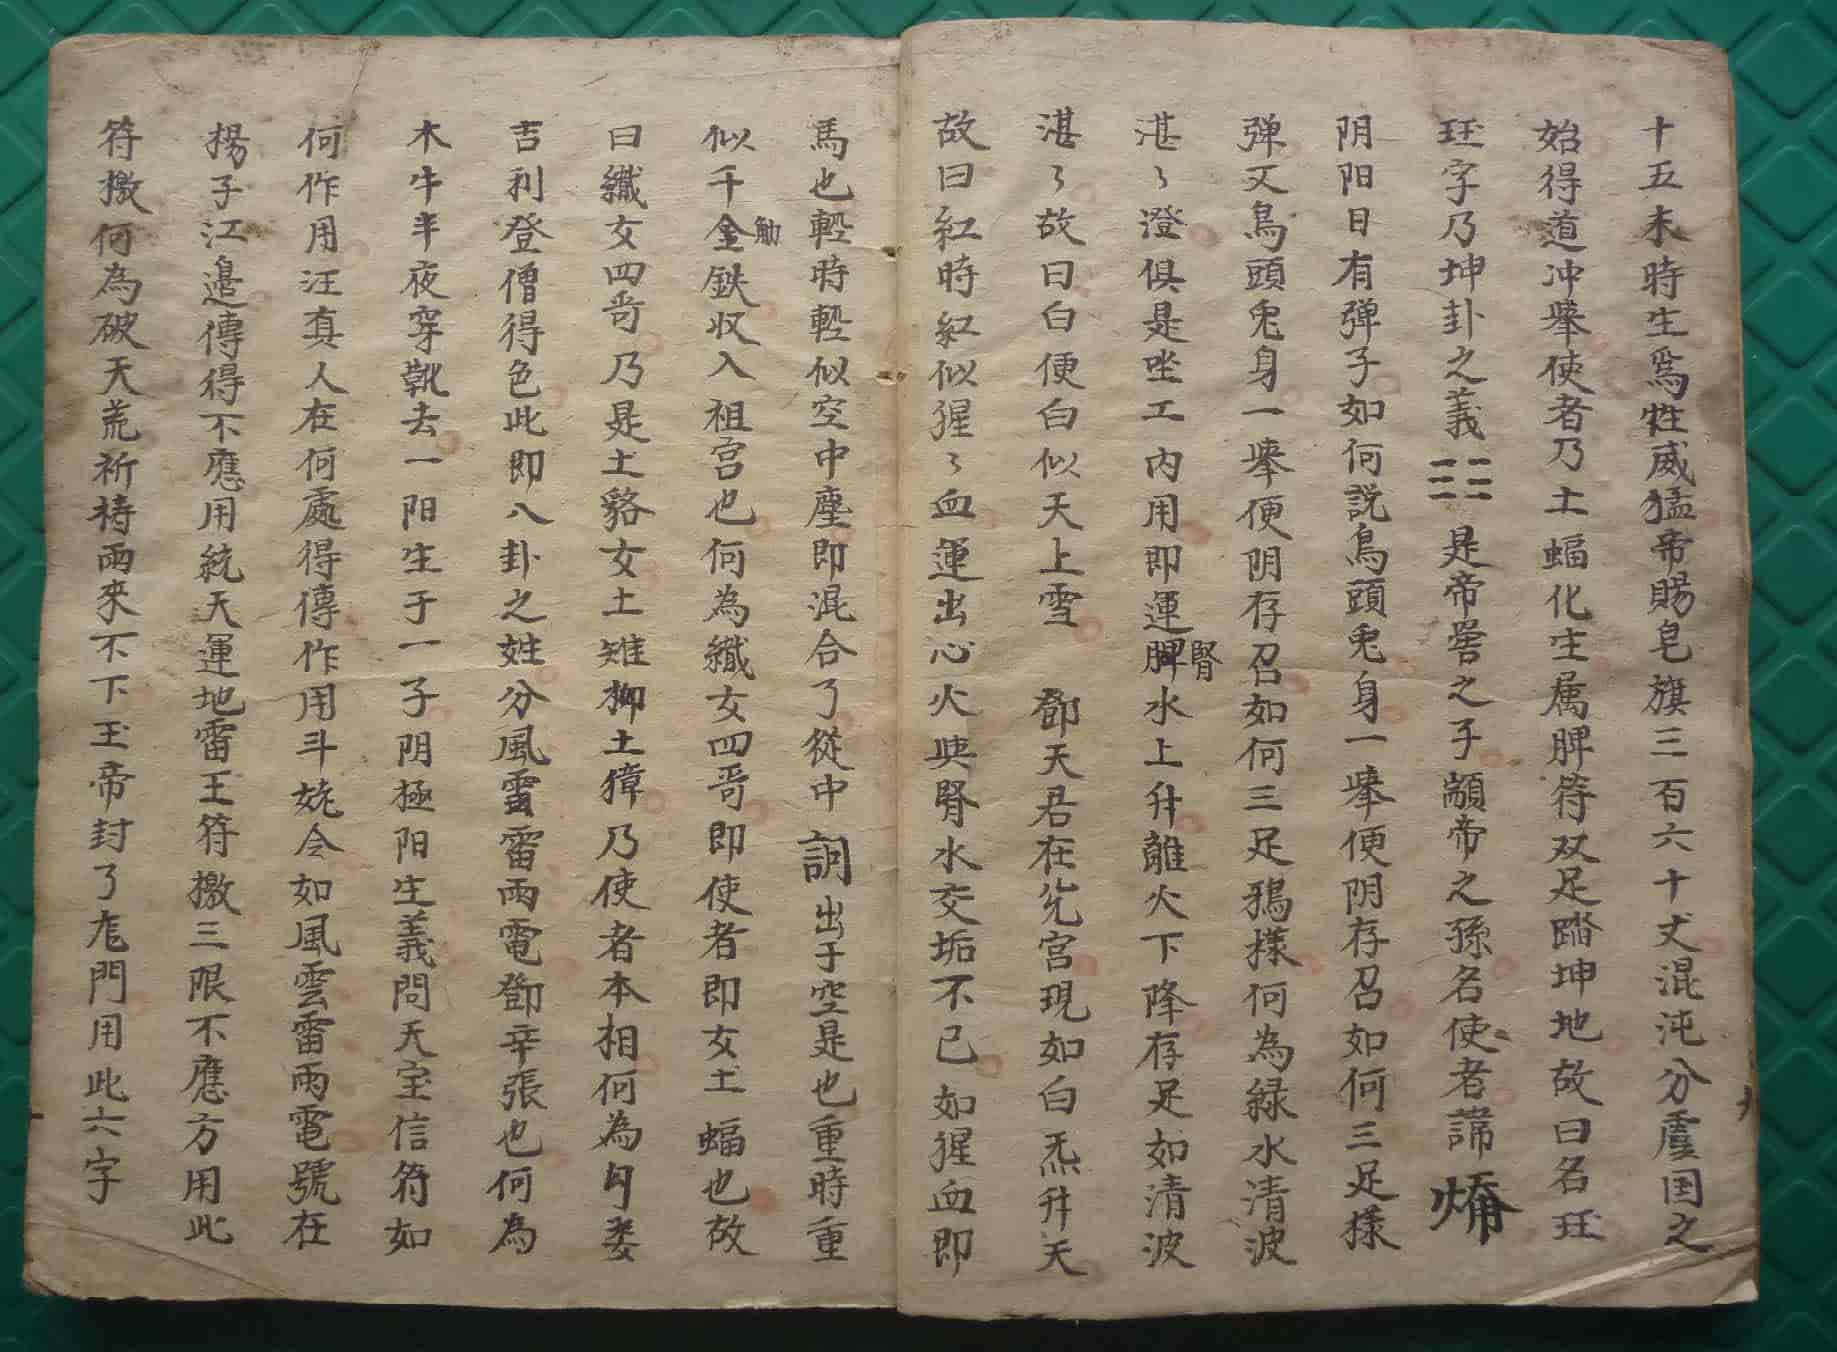 十五未時生爲性威猛帝賜皂旗三百六十丈混沌分虞国之
始得道冲举使者乃土蝠化生属脾符双足踏坤地故曰名玨
玨字乃坤卦之義☷☷是帝嚳之子顓帝之孫名使者諱
阴阳日有弹子如何説鳥頭兎身一举便阴存召如何三足樣
弹又鳥頭兎身一举便阴存召如何三足鴉樣何為緑水清波
湛〻澄俱是坐工内用即運脾腎水上升離火下降存足如清波
湛〻故曰白便白似天上雪 鄧天君在兊宮現如白炁升天
故曰紅時紅似猩〻血運出心火與腎水交垢不已如猩血即
馬也輕時輕似空中塵即混合了從中詞出于空是也重時重
似千金觔鉄收入祖宫也何為纖女四哥即使者即女土蝠也故
曰纖女四哥乃是土貉女土雉柳土獐乃使者本相何為勾娄
吉利登僧得色此即八卦之姓分風雷雷雨電鄧辛張也何為
木牛半夜穿靴去一阳生于一子阴極阳生義問天宝信符如
何作用汪真人在何處得傳作用斗姥令如風雲雷雨電號在
揚子江邉傳得不應用統天運地雷王符檄三限不應方用此
符檄何為破天荒祈祷雨來不下玉帝封了 門用此六字